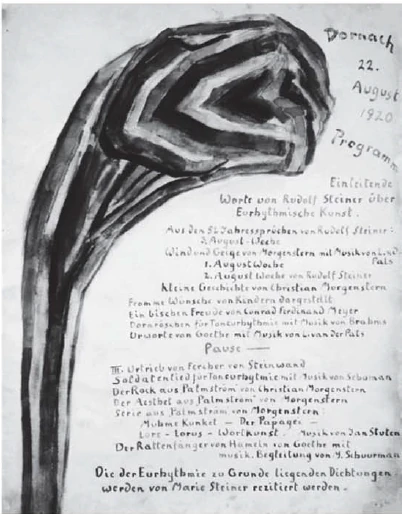 Dornach
22.
August
1920
Programm
Einleitende
Worte von Rudolf Steiner über
Eurhythmische Kunst.
Aus den 52 Jahressprüchen von Rudolf Steiner:
3. August-Woche
Wind und Geige von Morgenstern mit Musik von L.v.d.
Pals
1. August Woche
2. August Woche von Rudolf Steiner
Kleine Geschichte von Christian Morgenstern
Fromme Wünsche von Kindern dargestellt
Ein bischen Freude von Conrad Ferdinand Meyer
Dornröschen für Toneurhythmie mit Musik von Brahms
Urworte von Goethe mit Musik von L.van der Pals
Pause —
III. Urtrieb von Fercher von Steinwand
Soldatenlied für Toneurhytmie mit Musik von Schuman
Der Rock aus Palmström von Christian Morgenstern
Der Aesthet aus Palmström von Morgenstern
Serie aus Palmström von Morgenstern:
Muhme Kunkel — Der Papagei —
Lore — Lorus — Wortkunst. Musik von Jan Stuten
Der Rattenfänger von Hameln von Goethe mit
musik. Begleitung von Schuurman
Die der Eurhythmie zu Grunde liegenden Dichtungen
werden von Marie Steiner rezitiert werden.